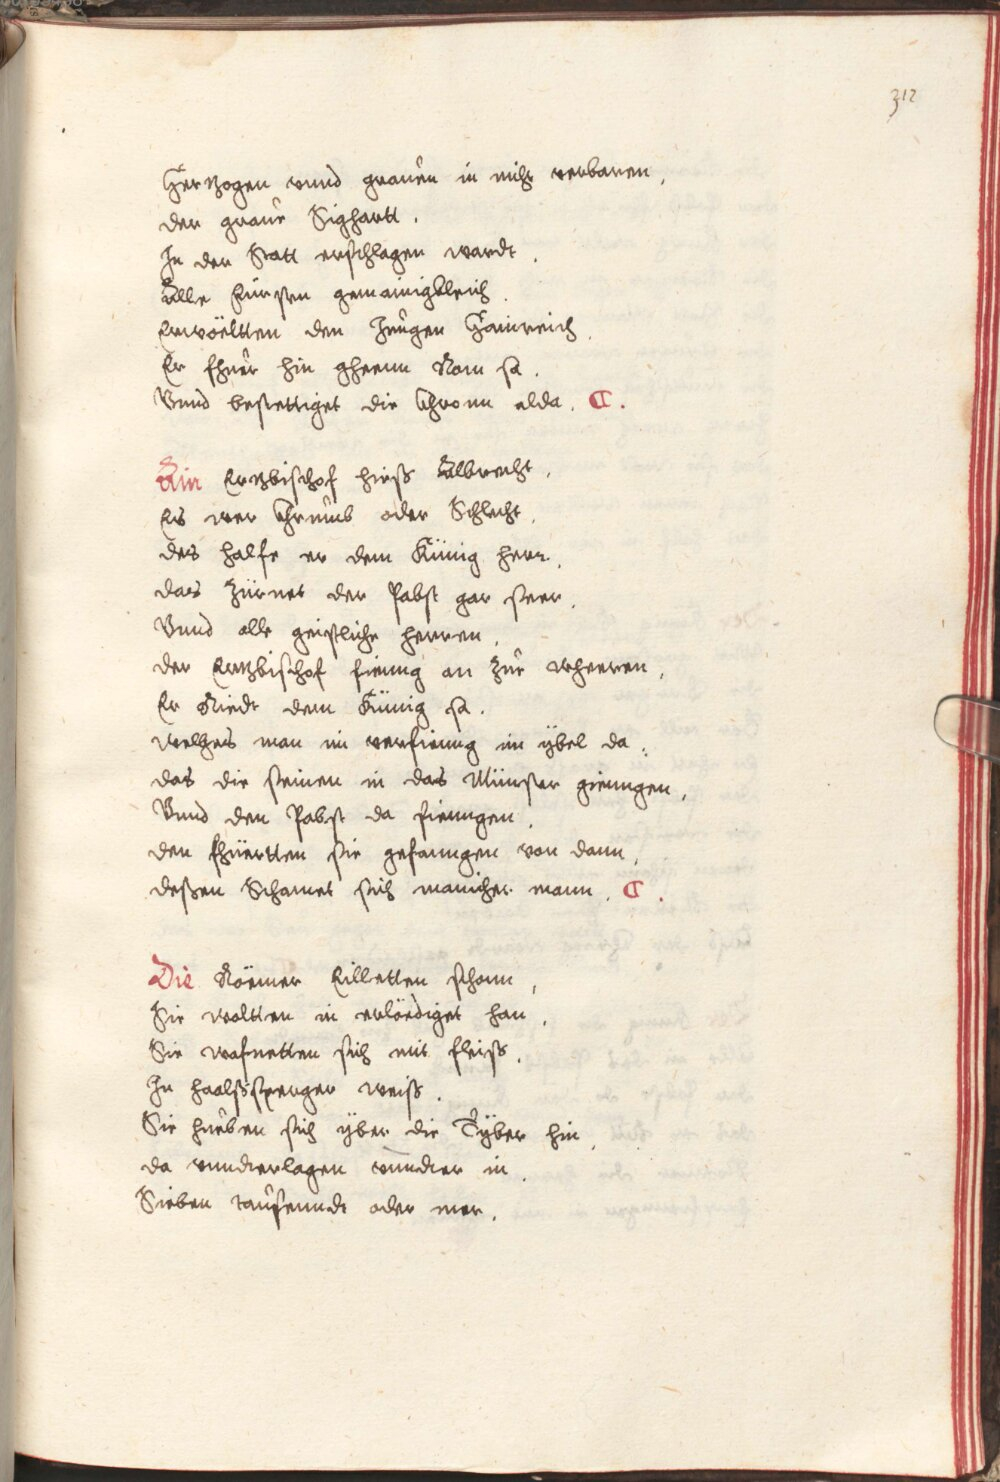 312
Hertzogen vnnd grauen in nicht verbaren,
der graue Sighartt.
In der Statt erschlagen wardt.
Alle Fürsten gemainigkleich.
Erwöeltten den Jungen Hainreich.
Er fhuer hin gheenn Rom sa.
Vnnd bestettiget die Chronn alda. C.
Ein Ertzbischof hieß Albrecht.
Es wer Chrumb oder Schlecht.
des halfe er dem Künig herr.
das Zürnet der Pabst gar seer.
Vnnd alle geistliche herren.
der Ertzbischof fienng an zue wheeren,
Er Riedt dem Künig sa.
welches man im verfienng im ÿbel da.
das die seinen in das Münster giengen,
Vnnd den Pabst da fienngen.
den fhüertten sie gefanngen von dann,
deßen Schamet sich manicher mann. C.
Die Röemer Eilletten schonn,
Sie woltten in erlöediget han.
Sie wafnetten sich mit fleiß.
In haalßsperger weiß.
Sie hueben sich ÿber die Tÿber hin.
da vnnderlagen vnnder in.
Sieben tausenndt oder mer.